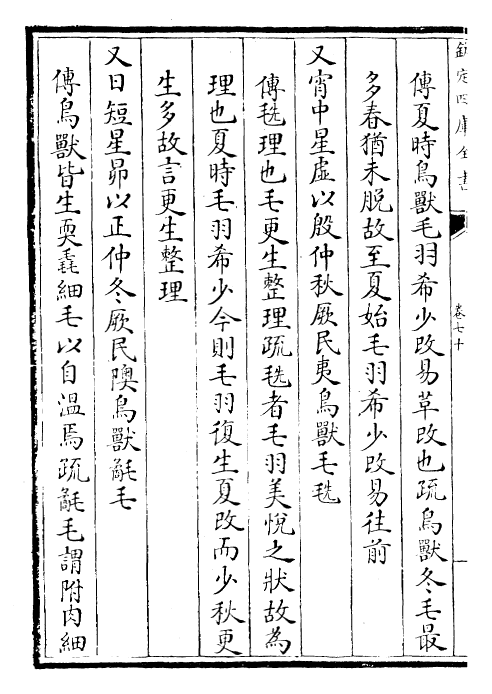 欽定四庫全書
卷七十
傳夏時鳥獸毛羽希少改易草改也疏鳥獸冬毛最
多春猶未脫故至夏始毛羽希少改易往前
又宵中星虛以殷仲秋厥民夷鳥獸毛毨
傳毨理也毛更生整理疏毨者毛羽美悅之狀故為
理也夏時毛羽希少今則毛羽復生夏改而少秋更
生多故言更生整理
又日短星昴以正仲冬厥民隩鳥獸氄毛
傳鳥獸皆生耎毳細毛以自溫焉疏氄毛謂附肉細